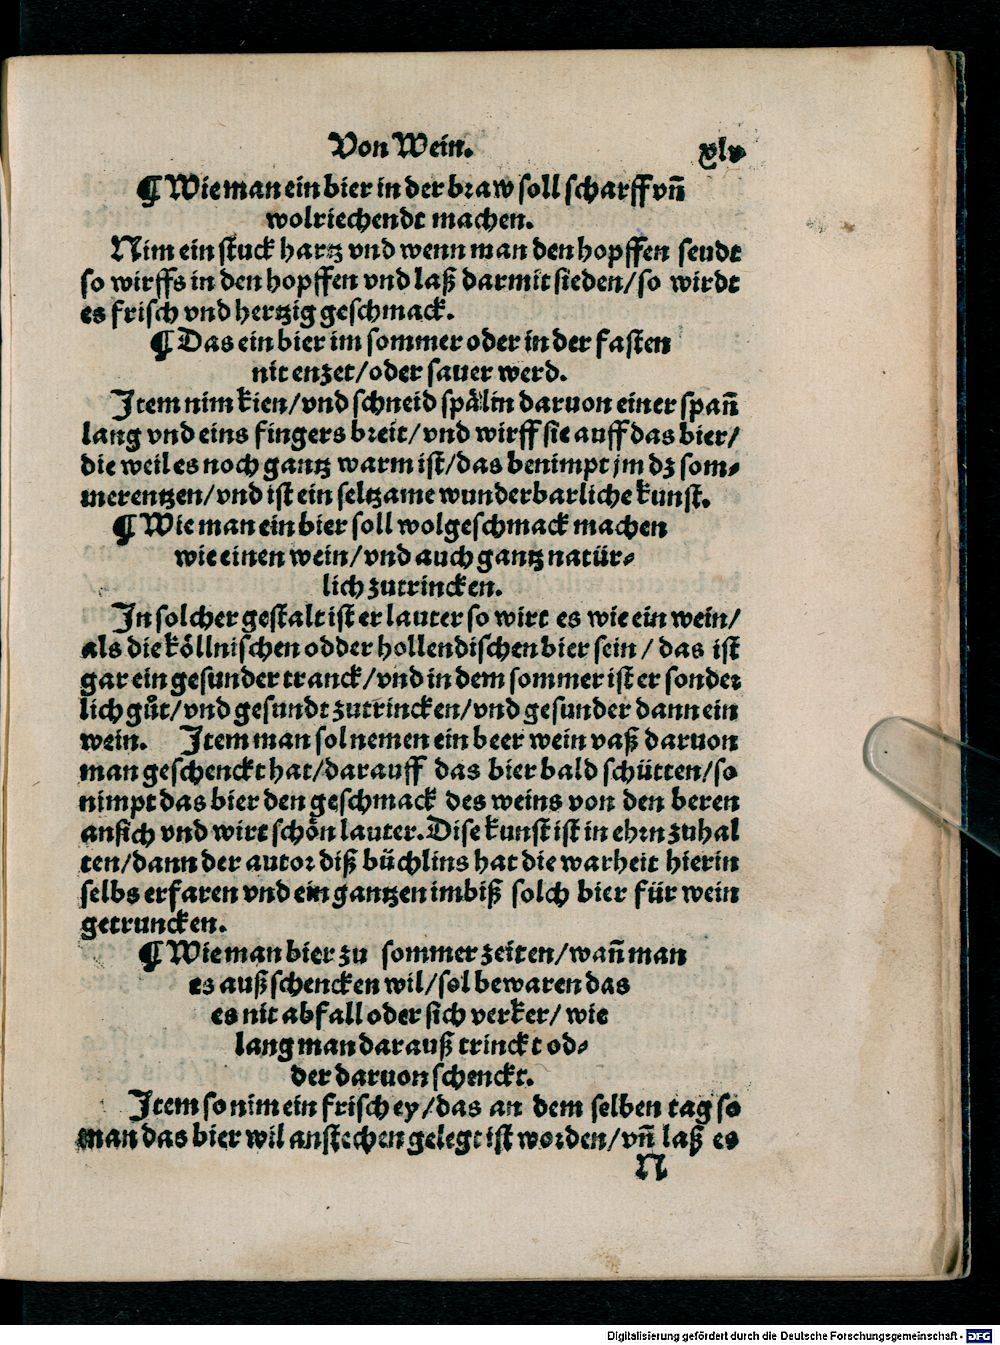 Von Wein.
xlv
¶ Wie man ein bier in der braw soll scharff vñ
wolriechendt machen.
Nim ein stuck hartz vnd wenn man den hopffen seudt
so wirffs in den hopffen vnd laß darmit sieden/so wirdt
es frisch vnd hertzig geschmack.
¶ Das ein bier im sommer oder in der fasten
nit enzet/oder sauer werd.
Item nim kien/vnd schneid spälin daruon einer spañ
lang vnd eins fingers breit/vnd wirff sie auff das bier/
die weil es noch gantz warm ist/das benimpt jm dz som⸗
merentzen/vnd ist ein seltzame wunderbarliche kunst.
¶ Wie man ein bier soll wolgeschmack machen
wie einen wein/vnd auch gantz natür⸗
lich zutrincken.
In solcher gestalt ist er lauter so wirt es wie ein wein/
als die köllnischen odder hollendischen bier sein/ das ist
gar ein gesunder tranck/vnd in dem sommer ist er sonder
lich gůt/vnd gesundt zutrincken/vnd gesunder dann ein
wein. Item man sol nemen ein beer wein vaß daruon
man geschenckt hat/darauff das bier bald schütten/so
nimpt das bier den geschmack des weins von den beren
an sich vnd wirt schön lauter. Dise kunst ist in ehrn zuhal
ten/dann der autor diß büchlins hat die warheit hierin
selbs erfaren vnd ein gantzen imbiß solch bier für wein
getruncken.
¶ Wie man bier zu sommer zeiten/wañ man
es auß schencken wil/sol bewaren das
es nit abfall oder sich verker/ wie
lang man darauß trinckt od⸗
der daruon schenckt.
Item so nim ein frisch ey/das an dem selben tag so
man das bier wil anstechen gelegt ist worden/vñ laß es
N
Digitalisierung gefördert durch die Deutsche Forschungsgemeinschaft - DFG